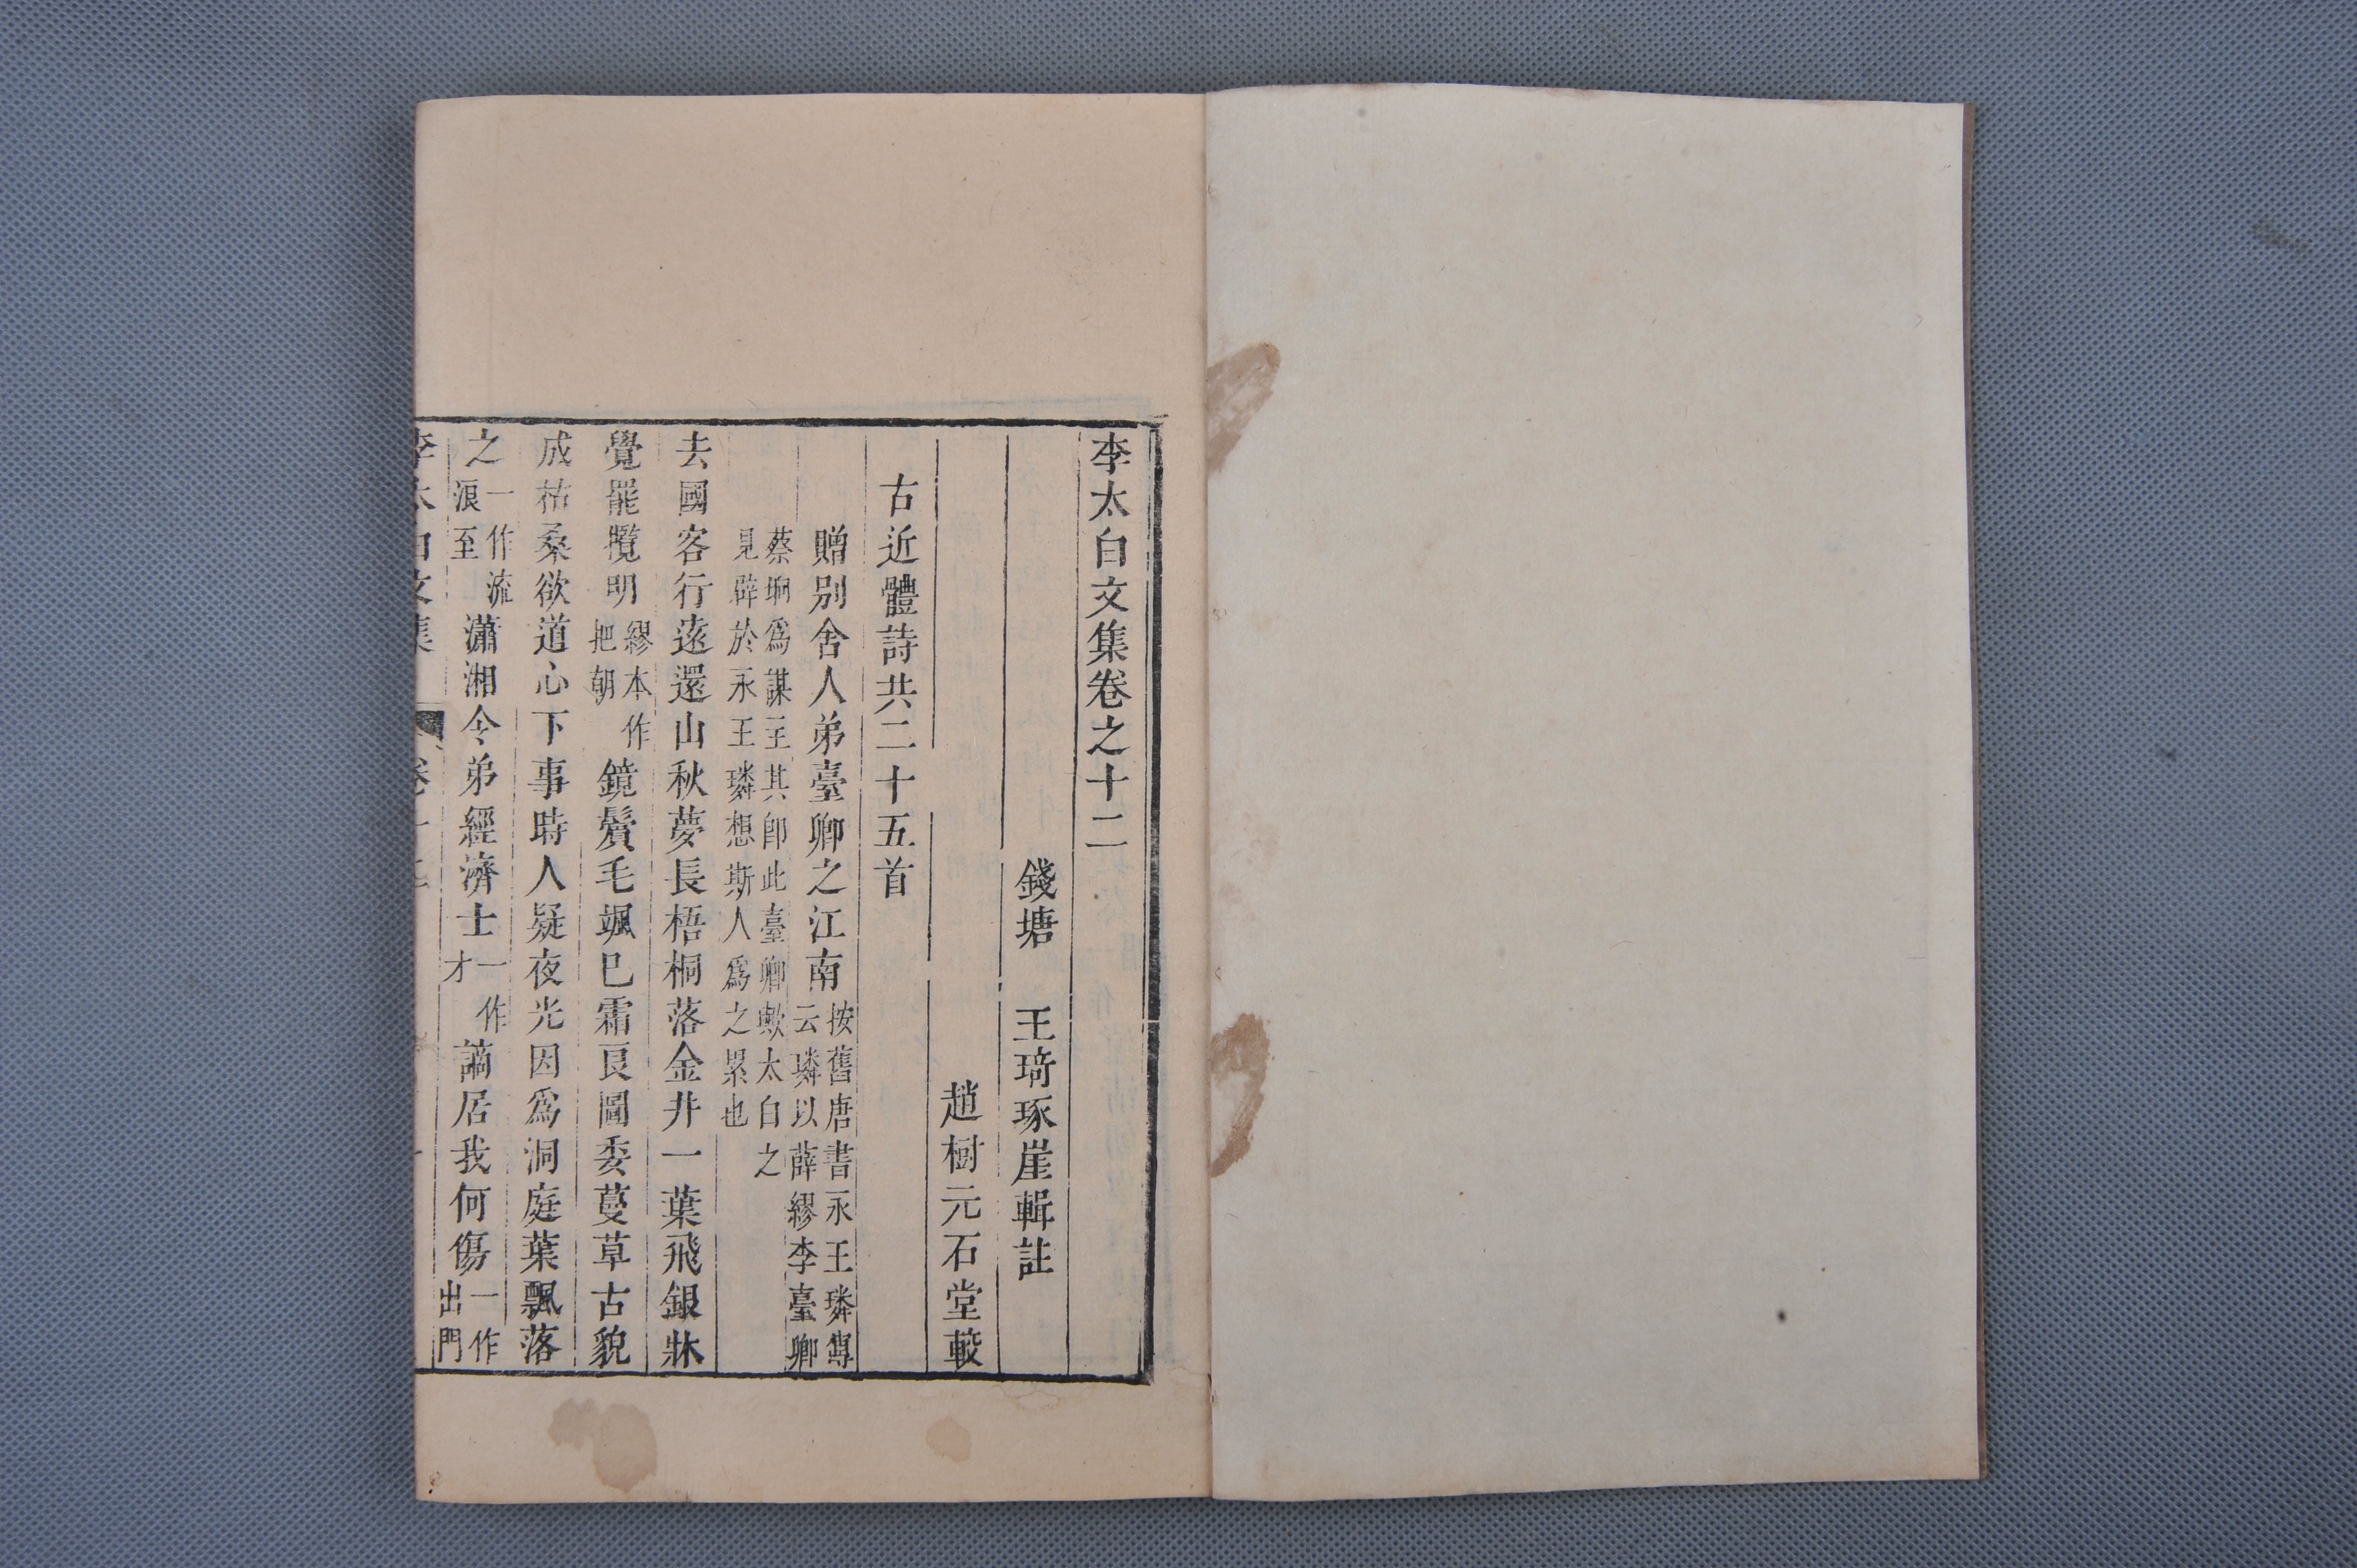 李太白文集卷之十二
錢塘 王琦琢崖輯註
趙樹元石堂較
古近體詩共二十五首
贈別舍人弟臺卿之江南按舊唐書永王璘傳云璘以薛繆李臺卿
蔡坰爲謀主其卽此臺卿歟太白之見辟於永王璘想斯人爲之累也
去國客行遠還山秋夢長梧桐落金井一葉飛銀牀
覺罷攬明繆本作把朝鏡鬢毛颯已霜良圖委蔓草古貌
成枯桑欲道心下事時人疑夜光因爲洞庭葉飄落
之一作流浪至瀟湘令弟經濟士一作才謫居我何傷一作出門
李太白文集 卷十二